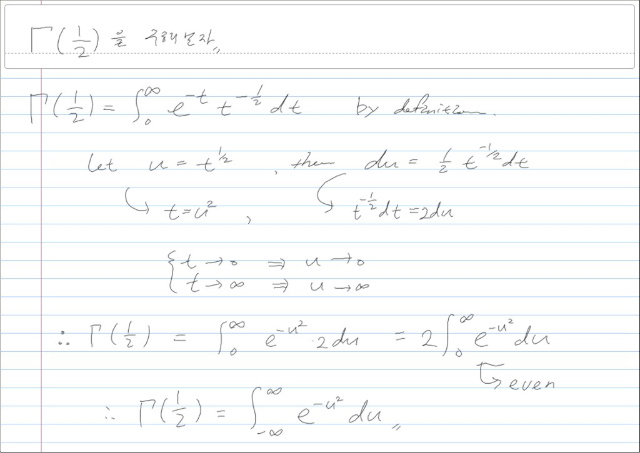 Γ(1/2) 을 구해보자〃
Γ(1/2) = ∫₀^∞ e^{-t} t^{-1/2} dt by definition.
Let u = t^{1/2}, then du = 1/2 t^{-1/2} dt
↳ t = u², ↳ t^{-1/2} dt = 2du
{ t → 0 ⇒ u → 0
t → ∞ ⇒ u → ∞
∴ Γ(1/2) = ∫₀^∞ e^{-u²} · 2du = 2∫₀^∞ e^{-u²} du
↳ even
∴ Γ(1/2) = ∫_{-∞}^∞ e^{-u²} du〃